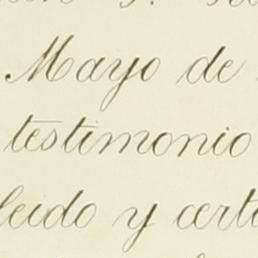 Mayo de
testimonio
leido y certi